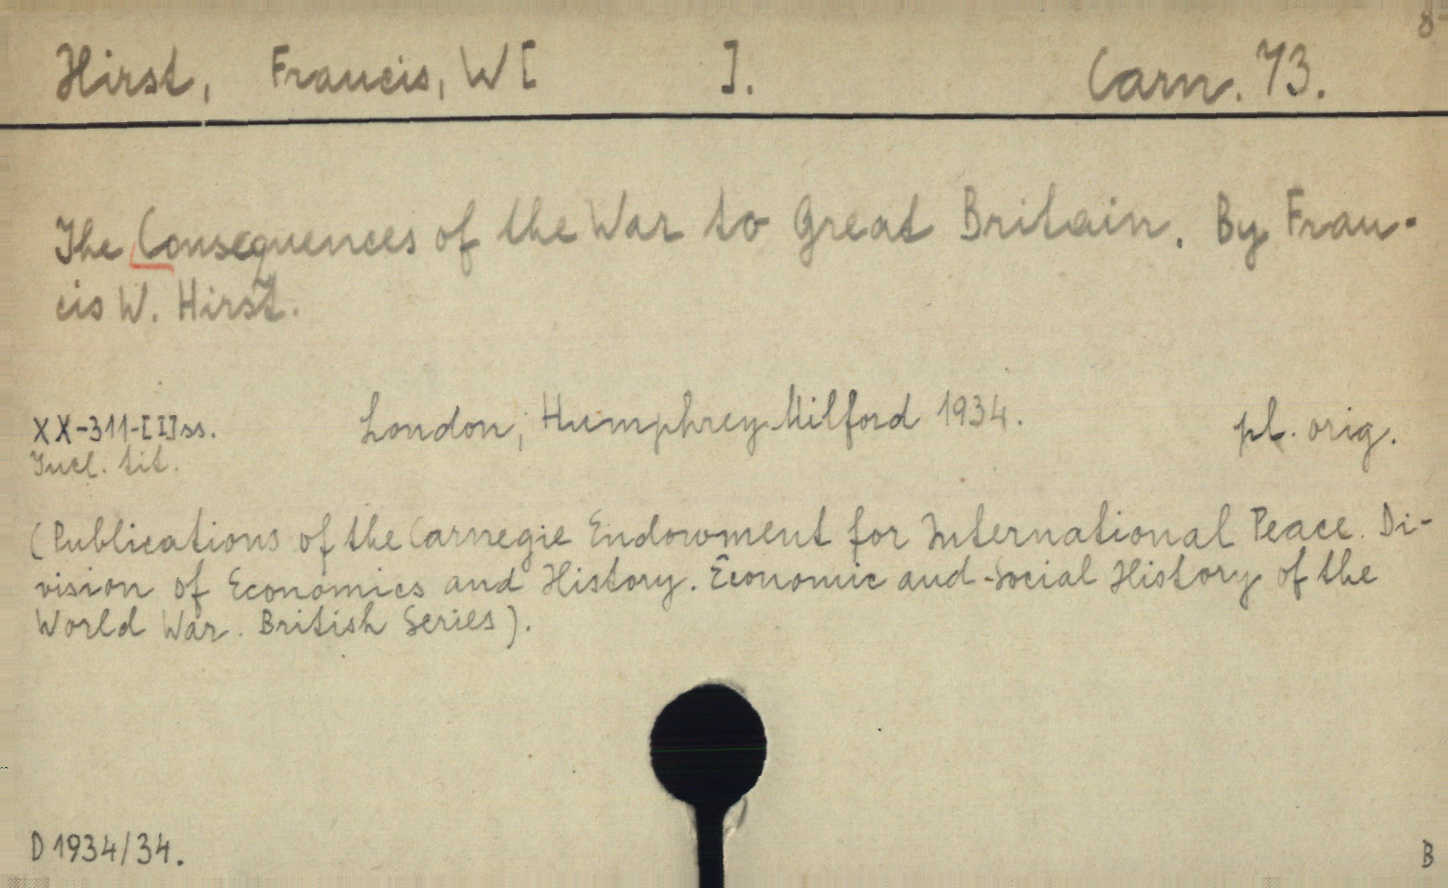 8-
Hirst, Francis, W[ ]. Carn. 73.
The Consequences of the War to Great Britain. By Fran-
cis W. Hirst.
XX-311-[I]ss. London, Humphrey Milford 1934. pl. orig.
Incl. tit.
(Publications of the Carnegie Endowment for International Peace. Di-
vision of Economics and History. Economic and Social History of the
World War. British Series).
D 1934/34. B